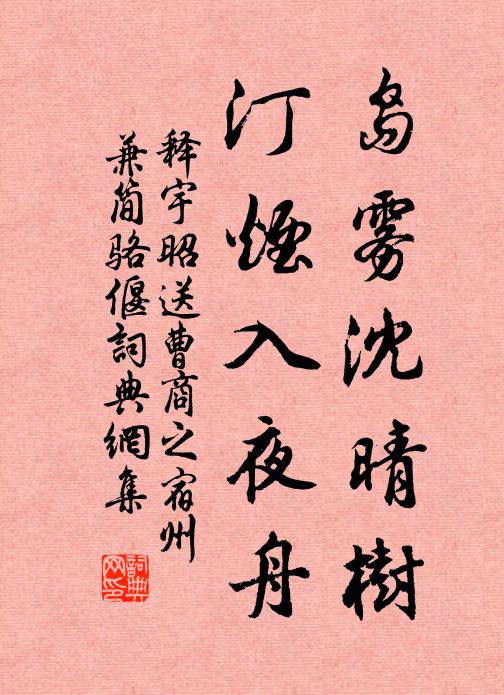 岛雾沈晴树
汀烟入夜舟
释宇昭送曹商之宿州
兼简骆偃词典網集
詞典网印